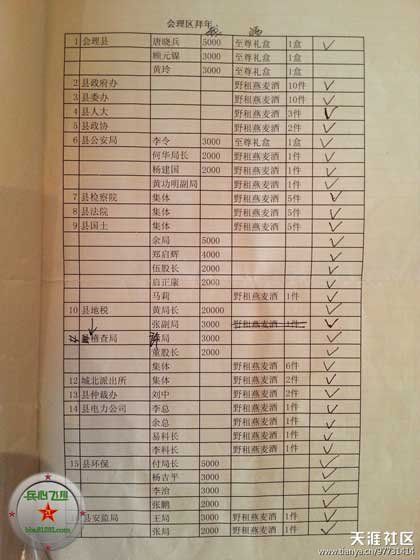 会理区拜年
钱 酒
1 会理县 唐晓兵 5000 至尊礼盒 1盒 ✓
顾元镍 3000 至尊礼盒 1盒
黄玲 3000 至尊礼盒 1盒
2 县政府办 野租燕麦酒 10件 ✓
3 县委办 野租燕麦酒 10件 ✓
4 县人大 野租燕麦酒 3件 ✓
5 县政协 野租燕麦酒 2件 ✓
6 县公安局 李令 3000 至尊礼盒 1盒 ✓
何华局长 2000 野租燕麦酒 1件 ✓
杨建国 2000 野租燕麦酒 1件 ✓
黄功明副局 野租燕麦酒 1件 ✓
7 县检察院 集体 野租燕麦酒 5件 ✓
8 县法院 集体 野租燕麦酒 5件 ✓
9 县国土 集体 野租燕麦酒 5件 ✓
余局 5000 ✓
郑启辉 4000 ✓
伍股长 2000 ✓
启正康 2000 ✓
马莉 野租燕麦酒 1件 ✓
10 县地税 黄局长 20000 ✓
张副局 3000 野租燕麦酒 1件 ✓
稽查局 局 3000 ✓
董股长 2000 ✓
集体 野租燕麦酒 6件 ✓
12 城北派出所 集体 野租燕麦酒 2件 ✓
13 县仲裁办 刘中 野租燕麦酒 2件 ✓
14 县电力公司 李总 野租燕麦酒 1件 ✓
余总 野租燕麦酒 1件 ✓
易科长 野租燕麦酒 1件 ✓
李科长 野租燕麦酒 1件 ✓
15 县环保 付局长 5000 ✓
杨吉平 3000 ✓
李治 3000 ✓
张鹏 2000 ✓
县安监局 王局 3000 野租燕麦酒 1件 ✓
张局 2000 野租燕麦酒 1件 ✓
民心飞翔
bbs81281.com
天涯社区
www.tianya.cn/97731414